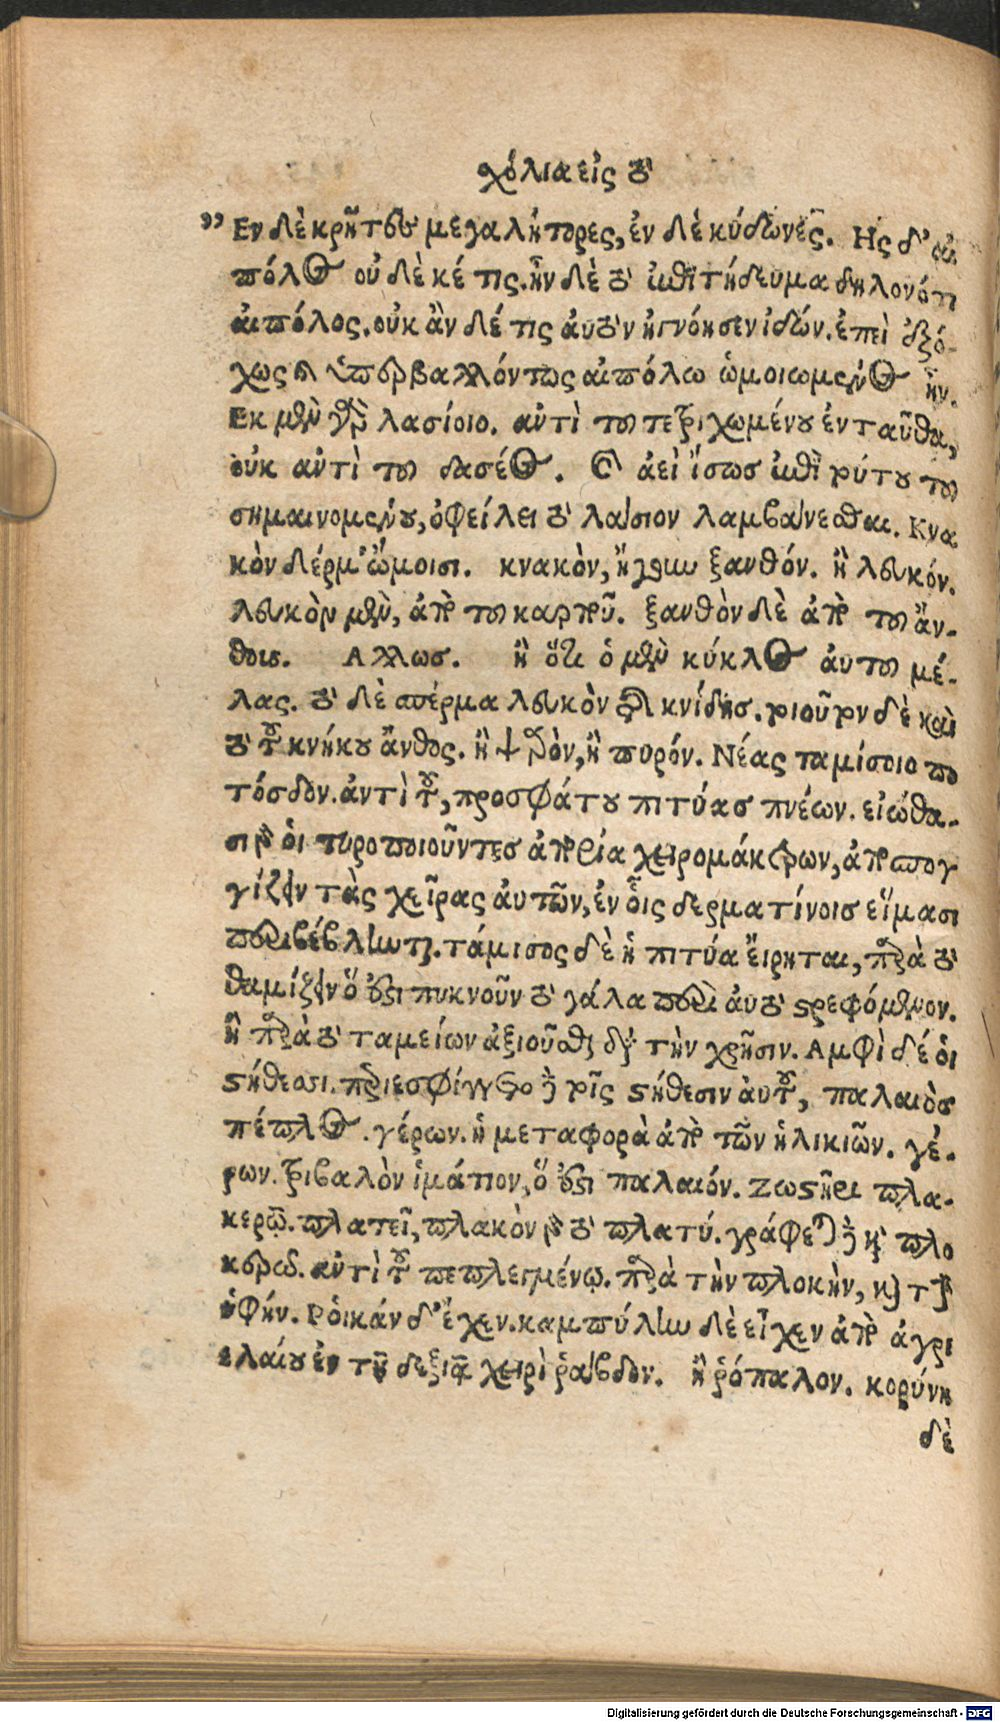 χόλια εἰς τὸ
” Εν δὲ κρῆτες μεγαλήτορες, ἐν δὲ κύδωνες. Ης δ' αἰ
πόλος οὐδὲ κέ τις. ἦν δὲ τὸ ἐπιτήδευμα δηλονότι
αἰπόλος. οὐκ ἂν δέ τις αὐτὸν ἠγνόησεν ἰδών. ἐπεὶ ἐξό-
χως καὶ ὑπερβαλλόντως αἰπόλῳ ὡμοιωμένος ἦν.
Εκ μὲν γὰρ λασίοιο. αὐτὶ τοῦ τετριχωμένου ἐνταῦθα,
οὐκ αὐτὶ τοῦ δασέος. ἀεὶ ἴσως ἐπὶ τούτου τοῦ
σημαινομένου, ὀφείλει τὸ λαίσιον λαμβαίνεσθαι. Κνα
κὸν δέρμ' ὤμοισι. κνακὸν, ἤγουν ξανθόν. ἢ λευκόν.
λευκὸν μὲν, ἀπὸ τοῦ καρποῦ. ξανθὸν δὲ ἀπὸ τοῦ ἄν-
θους. Αλλως. ἢ ὅτι ὁ μὲν κύκλος αὐτοῦ μέ-
λας. τὸ δὲ σπέρμα λευκὸν κνίδης. τοιοῦτον δὲ καὶ
τὸ τοῦ κνήκου ἄνθος. ἢ πυρόν. Νέας ταμίσοιο πο
τόσδον. ἀντὶ τοῦ, προσφάτου πιτύας πνέων. εἰώθα-
σι γὰρ οἱ τυροποιοῦντες ἀπὸ χειρομάκτρων, ἀποσπογ
γίζειν τὰς χεῖρας αὐτῶν, ἐν οἷς δερματίνοις εἵμασι
περιβέβληνται. τάμισος δὲ ἡ πιτύα εἴρηται, παρὰ τὸ
θαμίζειν ὅ ἐστι πυκνοῦν τὸ γάλα περὶ αὐτὸ στρεφόμενον.
ἢ παρὰ τὸ ταμείων ἀξιοῦσθαι διὰ τὴν χρῆσιν. Αμφὶ δέ οἱ
στήθεσσι. περιεσφίγγετο τοῖς στήθεσιν αὐτοῦ, παλαιὸς
πέπλος. γέρων. ἡ μεταφορὰ ἀπὸ τῶν ἡλικιῶν. γέ-
ρων. τριβαλὸν ἱμάτιον, ὅ ἐστι παλαιόν. Ζωστῆρι πλα-
κερῷ. πλατεῖ, πλακὸν γὰρ τὸ πλατύ. γράφεται καὶ πλο
κερῷ. αὐτὶ τοῦ πεπλεγμένῳ. παρὰ τὴν πλοκὴν, καὶ τὴν
ὑφήν. Ροικάν δ' ἔχεν. καμπύλην δὲ εἶχεν ἀπὸ ἀγρι
ελαίου ἐν τῇ δεξιᾷ χειρὶ ῥάβδον. ἢ ῥόπαλον. κορύνη
δὲ
Digitalisierung gefördert durch die Deutsche Forschungsgemeinschaft - DFG